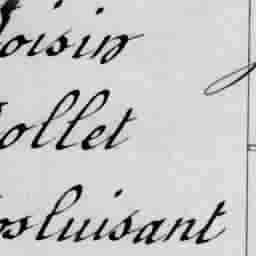 oisin
ollet
osluisant